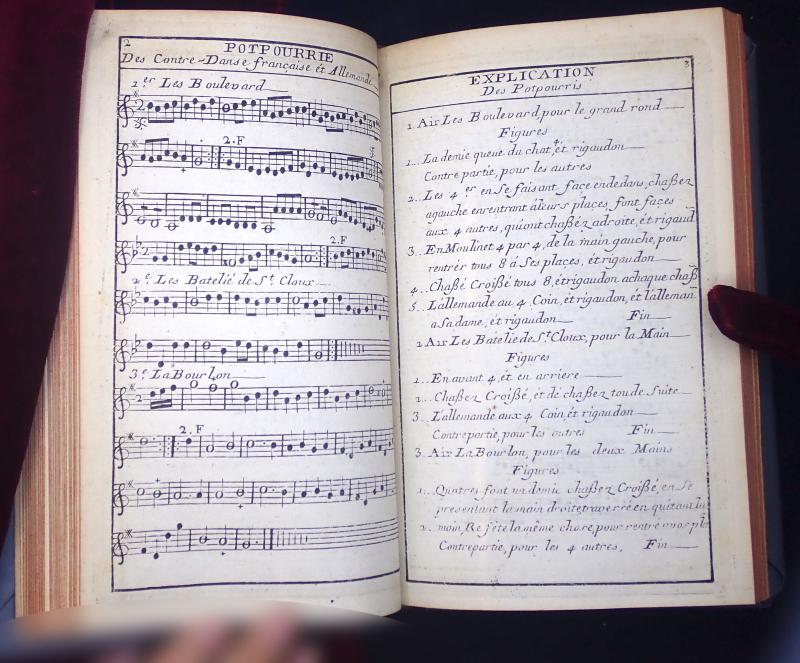 2
POTPOURRIE
Des Contre-Danse française et Allemande
1.er Les Boulevard
2.F
2.F
2.e Les Batelié de S.t Cloux
3.e La Bourlon
2.F
3
EXPLICATION
Des Potpourris
1. Air Les Boulevard, pour le grand rond
Figures
1.. La demie queue du chat, ét rigaudon
Contre partie, pour les autres
2.. Les 4 er en Se faisant face endedans, chaßez
agauche enrentrant áleurs places font faces
aux 4 autres, qui ont chaßéz adroite, ét rigaud
3.. En Moulinet 4 par 4, de la main gauche, pour
rentrér tous 8 á Ses places, ét rigaudon
4.. Chaßé Croißé tous 8, ét rigaudon achaque chaß
5.. L'allemande au 4 Coin, et rigaudon, et l'alleman
a Sa dame, ét rigaudon Fin
2 Air Les Batelie de S.t Cloux, pour la Main
Figures
1.. En avant 4, ét en arriere
2.. Chaßez Croißé, et dé chaßez tou de Suite
3.. L'allemande aux 4 Coin, ét rigaudon
Contre partie, pour les autres Fin
3. Air La Bourlon, pour les deux Mains
Figures
1.. Quatres font un demie chaßez Croißé, en Se
presentant la main droite traverré en quitant la
2.. main, Re j'éte la même chose, pour rentré a vos pla
Contre partie, pour les 4 autres, Fin